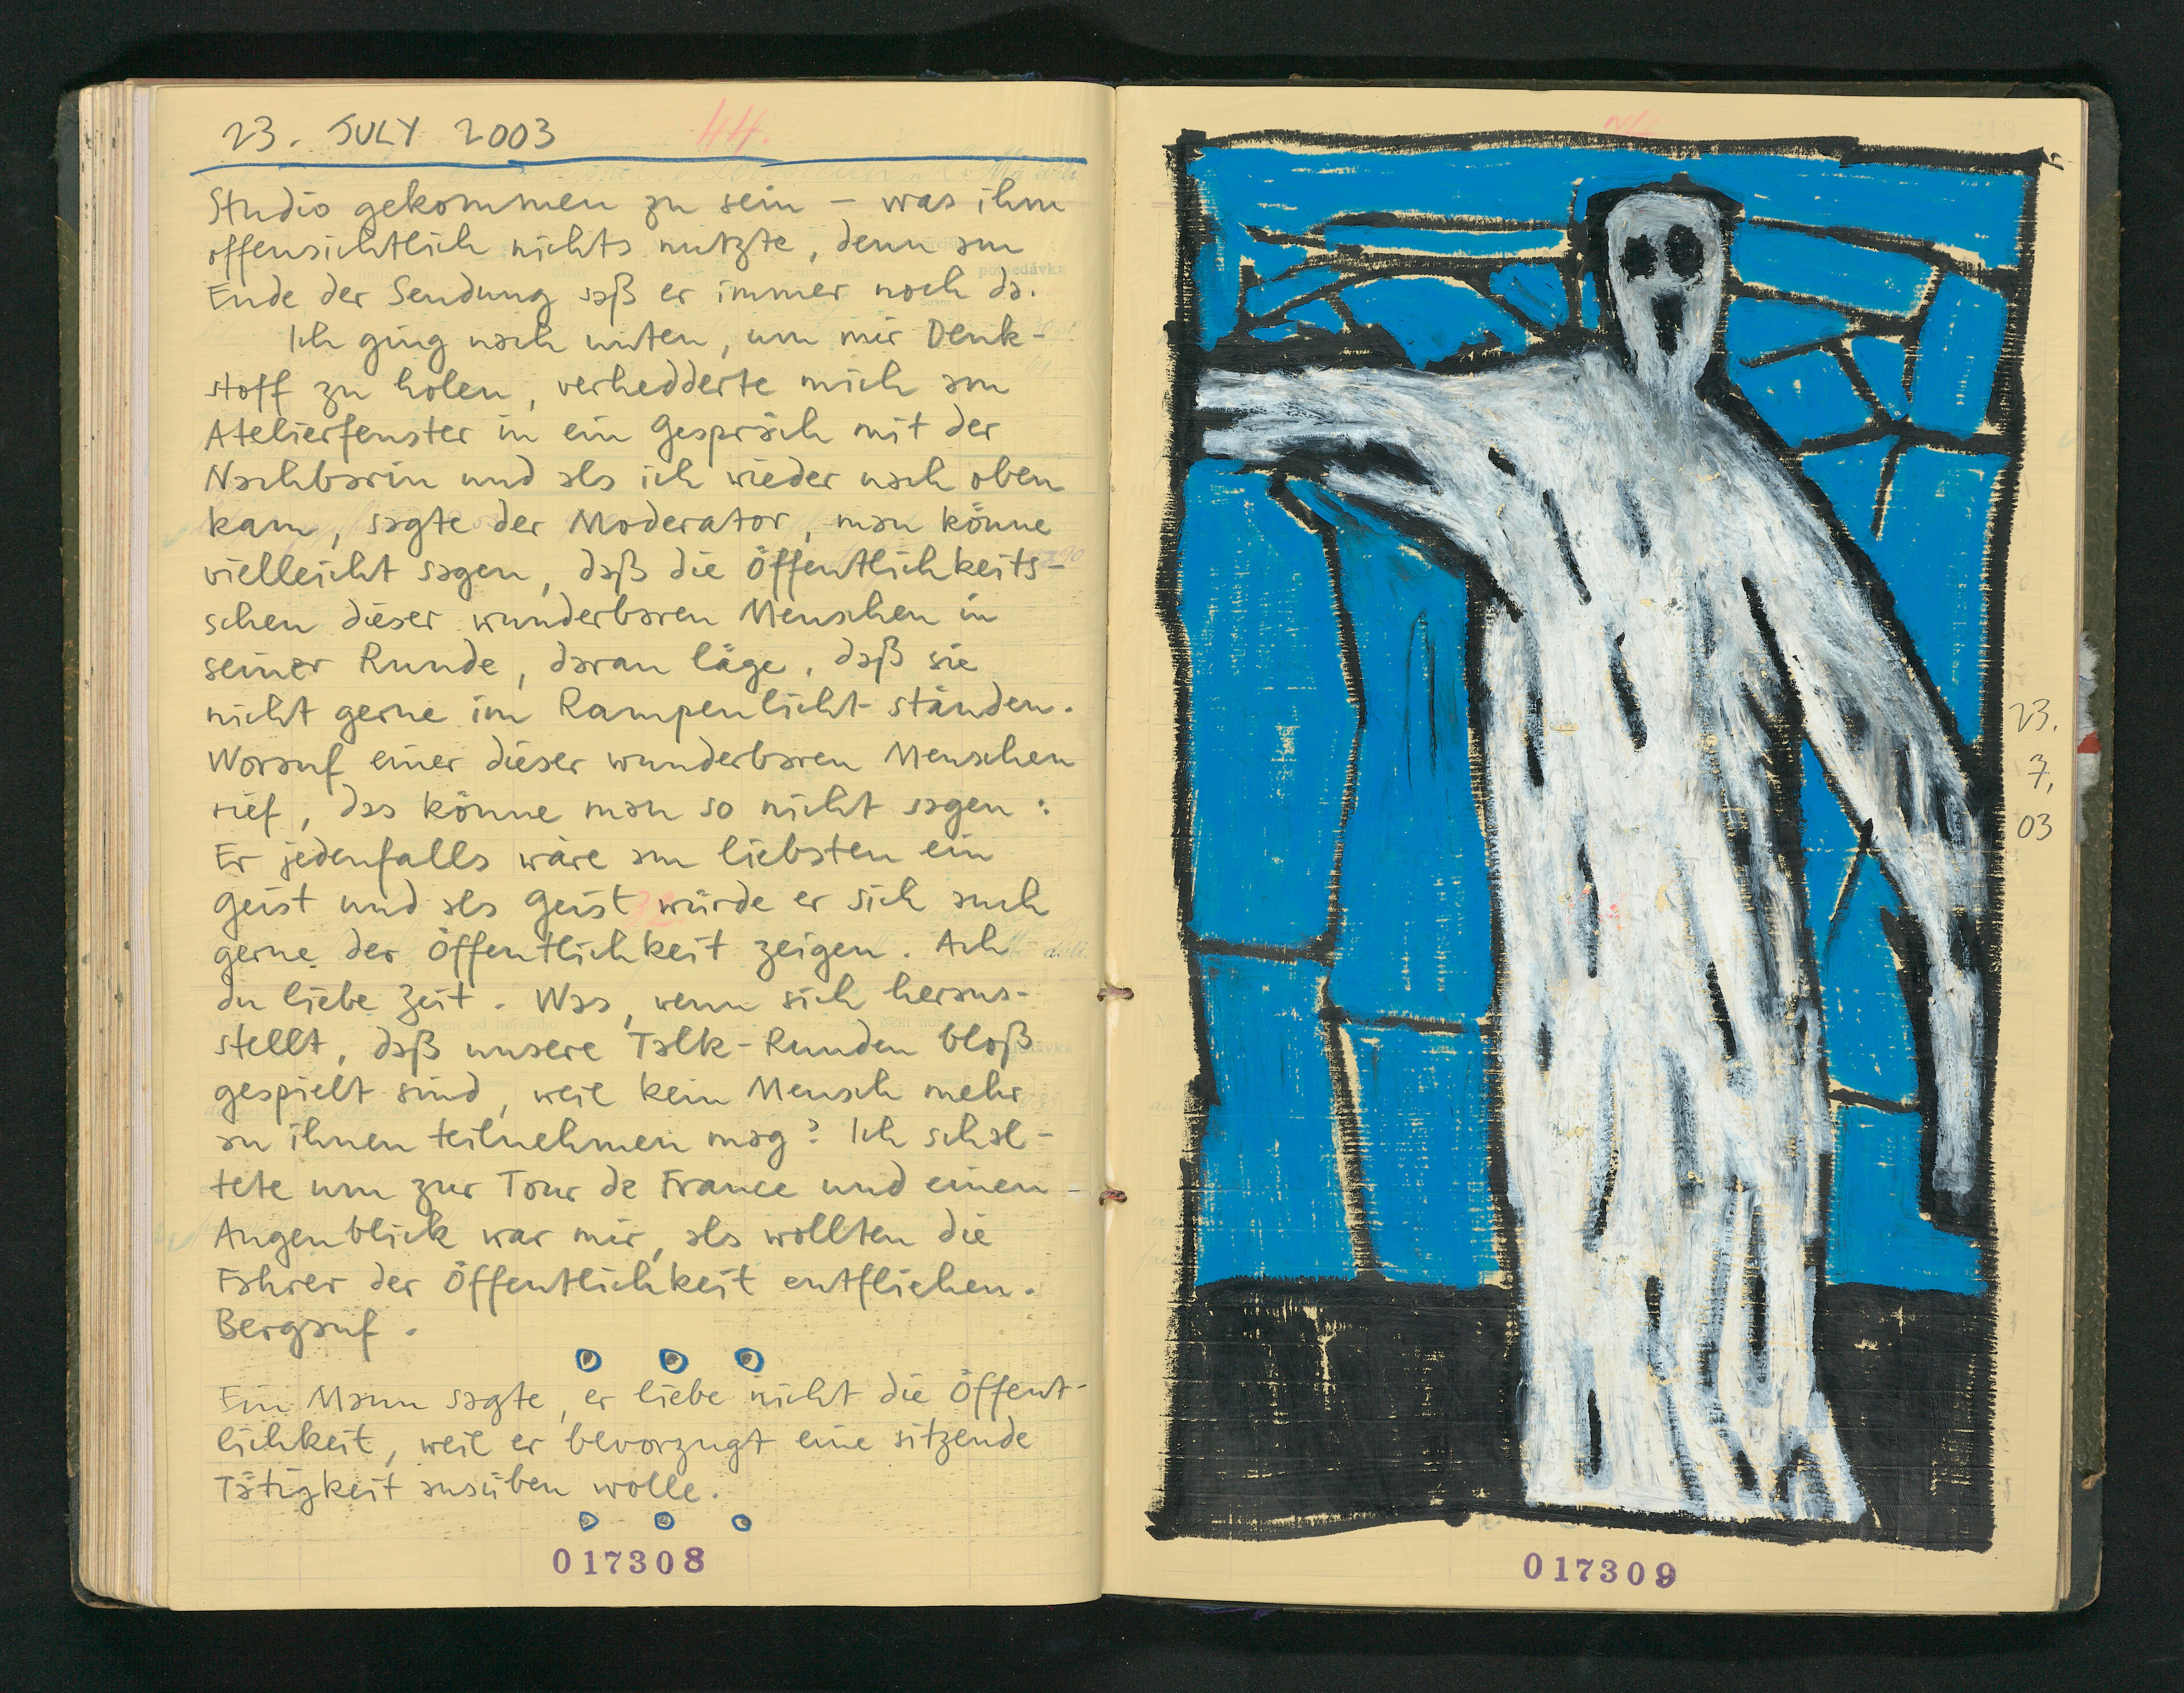 23. JULY 2003
44.
Studio gekommen zu sein – was ihm
offensichtlich nichts nützte, denn am
Ende der Sendung saß er immer noch da.
Ich ging nach unten, um mir Denk-
stoff zu holen, verhedderte mich am
Atelierfenster in ein Gespräch mit der
Nachbarin und als ich wieder nach oben
kam, sagte der Moderator, man könne
vielleicht sagen, daß die Öffentlichkeits-
scheu dieser wunderbaren Menschen in
seiner Runde, daran läge, daß sie
nicht gerne im Rampenlicht ständen.
Worauf einer dieser wunderbaren Menschen
rief, das könne man so nicht sagen:
Er jedenfalls wäre am liebsten ein
Geist und als Geist würde er sich auch
gerne der Öffentlichkeit zeigen. Ach
du liebe Zeit. Was, wenn sich heraus-
stellt, daß unsere Talk-Runden bloß
gespielt sind, weil kein Mensch mehr
an ihnen teilnehmen mag? Ich schal-
tete um zur Tour de France und einen
Augenblick war mir, als wollten die
Fahrer der Öffentlichkeit entfliehen.
Bergauf.
Ein Mann sagte, er liebe nicht die Öffent-
lichkeit, weil er bevorzugt eine sitzende
Tätigkeit ausüben wolle.
017308
23.
7.
03
017309